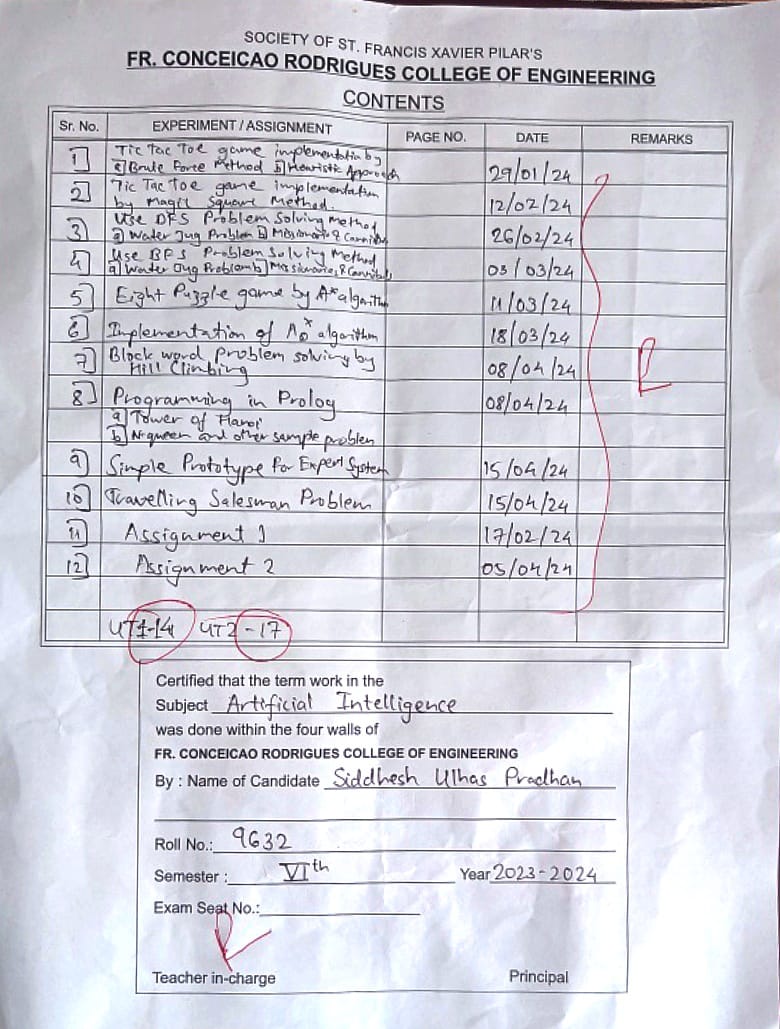 SOCIETY OF ST. FRANCIS XAVIER PILAR'S
FR. CONCEICAO RODRIGUES COLLEGE OF ENGINEERING
CONTENTS
Sr. No. EXPERIMENT / ASSIGNMENT PAGE NO. DATE REMARKS
1] Tic Tac Toe game implementation by
a] Brute Force Method b] Heuristic Approach 29/01/24
2] Tic Tac Toe game implementation
by Magic Square Method. 12/02/24
3] Use DFS Problem Solving Method
a] Water Jug Problem b] Missionaries & Cannibals 26/02/24
4] Use BFS Problem Solving Method
a] Water Jug Problem b] Missionaries & Cannibals 03/03/24
5] Eight Puzzle game by A* algorithm 11/03/24
6] Implementation of AO* algorithm 18/03/24
7] Block word Problem solving by
Hill Climbing 08/04/24
8] Programming in Prolog 08/04/24
a] Tower of Hanoi
b] N-queen and other sample problem
9] Simple Prototype for Expert System 15/04/24
10] Travelling Salesman Problem 15/04/24
11] Assignment 1 17/02/24
12] Assignment 2 05/04/24
UT1-14 UT2-17
Certified that the term work in the
Subject Artificial Intelligence
was done within the four walls of
FR. CONCEICAO RODRIGUES COLLEGE OF ENGINEERING
By : Name of Candidate Siddhesh Ulhas Pradhan
Roll No.: 9632
Semester : VIth Year 2023-2024
Exam Seat No.:
Teacher in-charge Principal